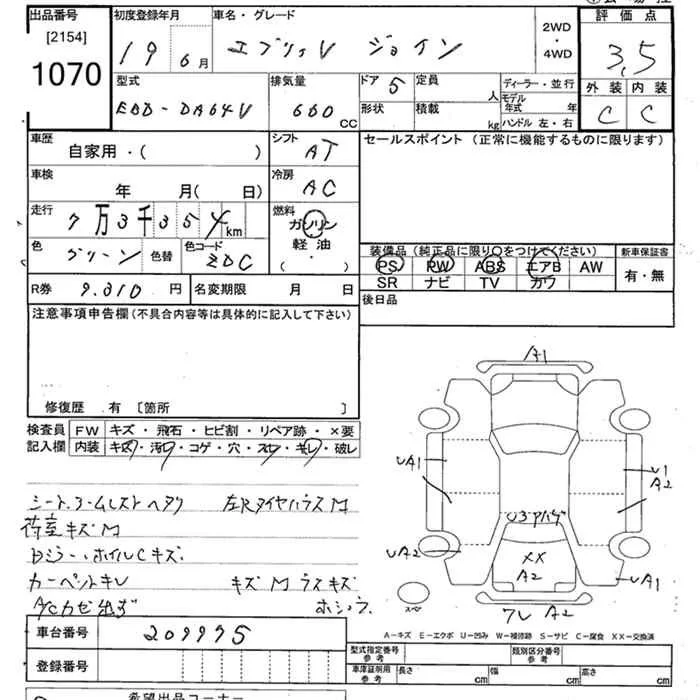 出品番号 初度登録年月 車名・グレード 2WD・4WD 評価点
[2154]
1070 19年 6月 エブリィV ジョイン 3,5
型式 排気量 ドア 5 定員 人 ディーラー・並行 外装 内装
EBD-DA64V 660 CC 形状 積載 kg モデル年式 年 ハンドル 左・右 C C
車歴 シフト セールスポイント (正常に機能するものに限ります)
自家用・( ) AT
車検 冷房
年 月(日) AC
走行 燃料
7万3千354km ガソリン
色 色替 色コード 軽油 装備品 (純正品に限り○をつけてください) 新車保証書
グリーン ZDC (・) PS PW ABS エアB AW 有・無
SR ナビ TV カワ
R券 9.310円 名変期限 月 日 後日品
注意事項申告欄 (不具合内容等は具体的に記入して下さい)
A1
修復歴 有 [箇所 ]
検査員 FW キズ・飛石・ヒビ割・リペア跡・×要
記入欄 内装 キズ・汚れ・コゲ・穴・スレ・キレ・破レ
UA1 U1 A2
シート.アームレストヘタリ 左Rタイヤハウス M
荷室キズM U3
UA2 XX A2 UA1
ホイルCキズ
カーペットキレ キズM
A/Cカゼ出ず スペ A2
車台番号 209975
A-キズ E-エクボ U-凹み W-補修跡 S-サビ C-腐食 XX-交換済
登録番号 型式指定番号 参考 類別区分番号 参考
車庫証明用 参考 長さ cm 幅 cm 高さ cm
希望出品コーナー